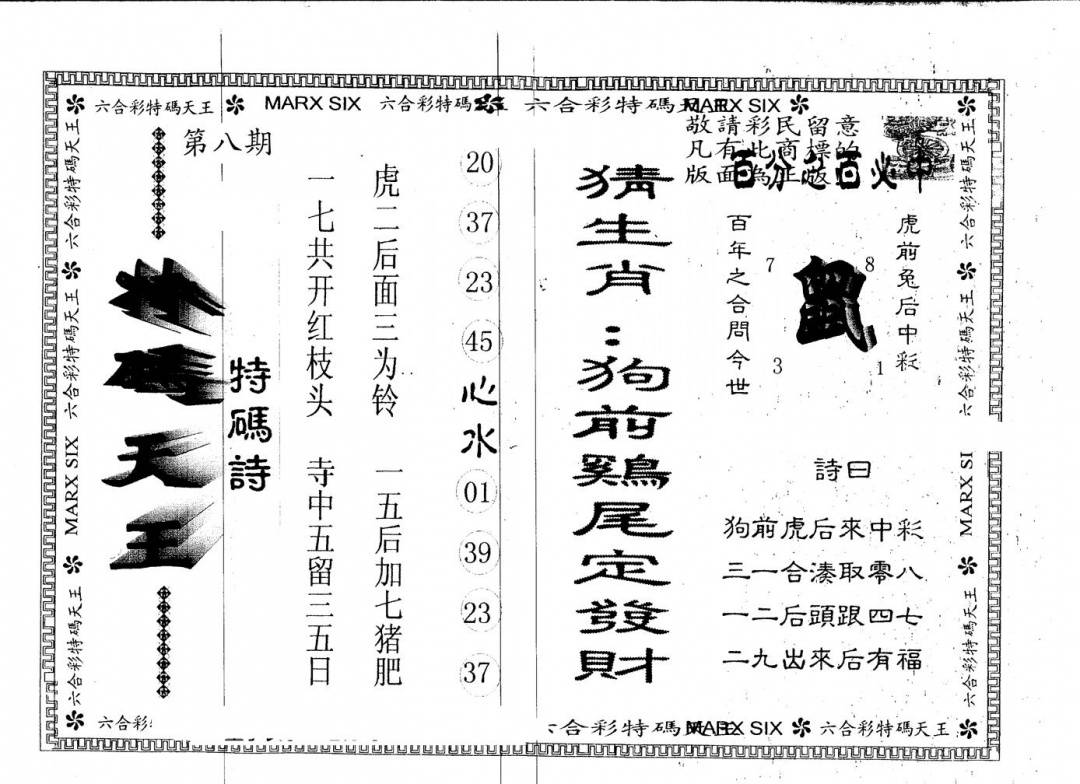 六合彩特碼天王
MARX SIX
六合彩特碼
六合彩特碼天王
MARX SIX
敬請彩民留意
凡有此商標的
版面為正版
百分之百必中
第八期
特碼天王
特碼詩
虎二后面三为铃 一五后加七猪肥
一七共开红枝头 寺中五留三五日
20
37
23
45
心水
01
39
23
37
猜生肖：狗前鷄尾定發財
虎前兔后中彩
百年之合問今世
鼠
7
8
3
1
詩曰
狗前虎后來中彩
三一合湊取零八
一二后頭跟四七
二九出來后有福
六合彩特碼天王
六合彩特碼天王
六合彩特碼天王
MARX SIX
六合彩特碼天王
六合彩特碼天王
六合彩特碼天王
六合彩特碼天王
MARX SI
六合彩特碼天王
六合彩
六合彩特碼
MARX SIX
六合彩特碼天王